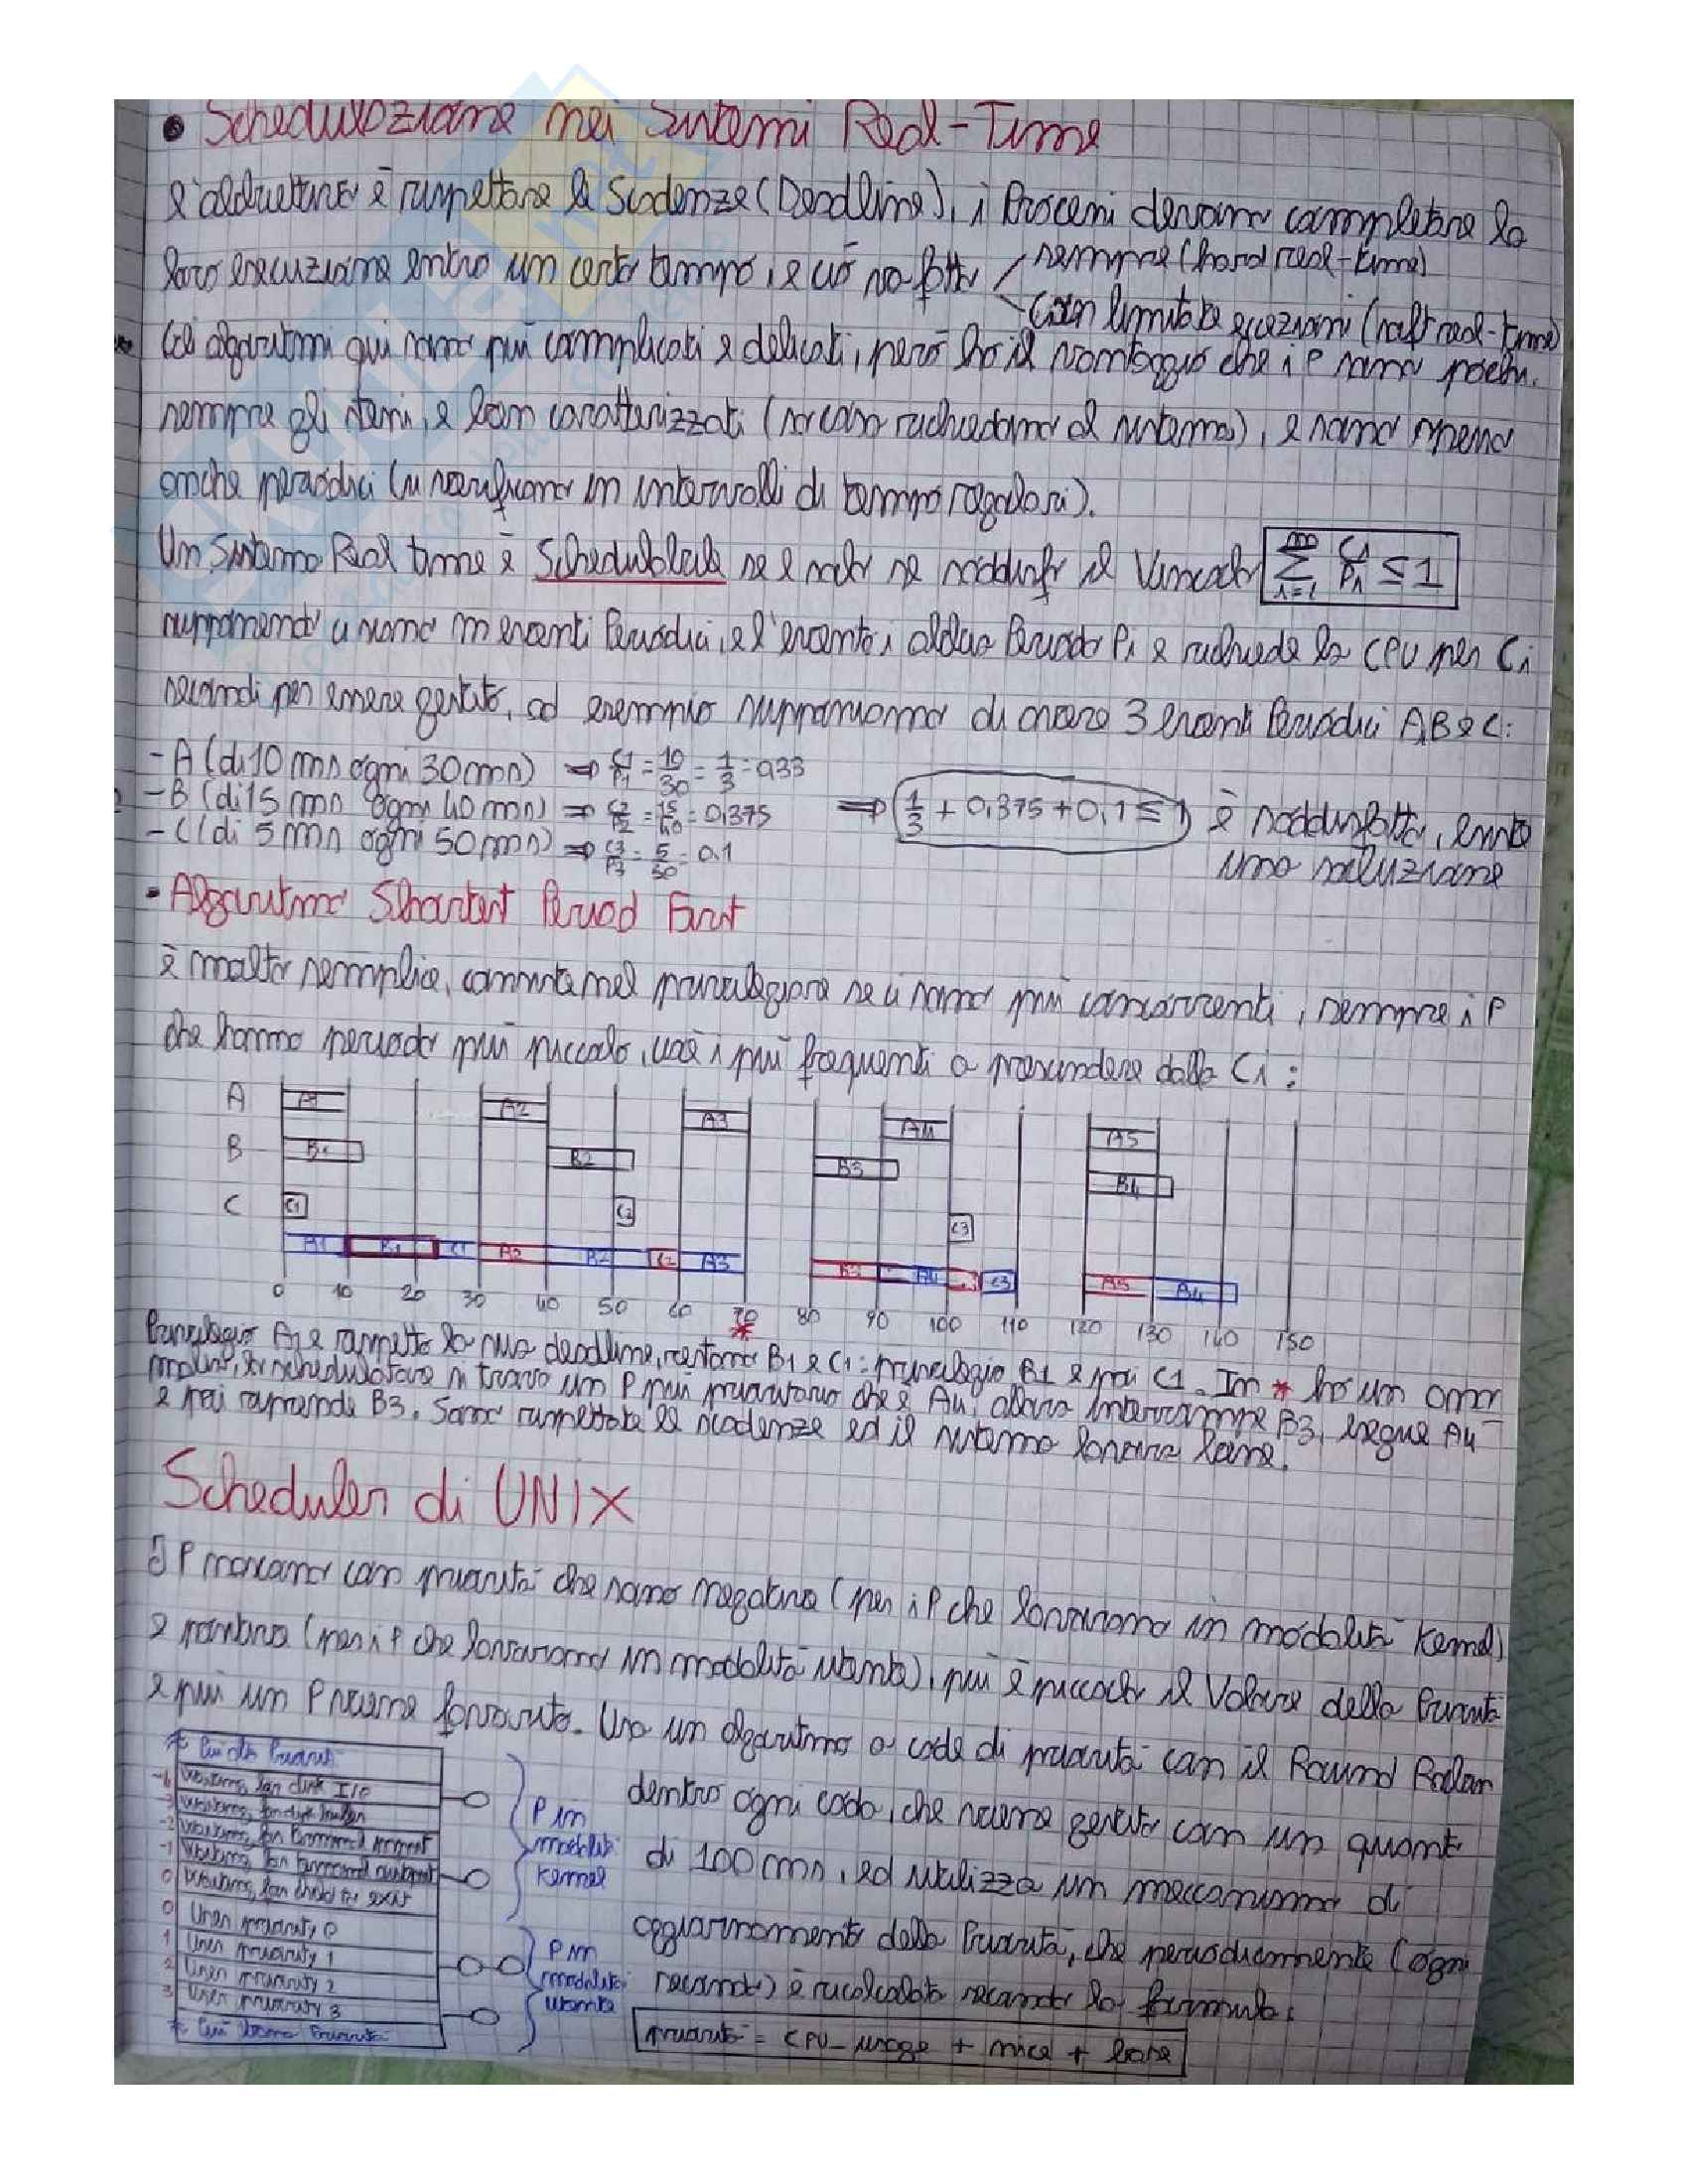 • Schedulazione nei Sistemi Real-Time
l'obbiettivo è rispettare le Scadenze (Deadline), i Processi devono completare la
loro esecuzione entro un certo tempo, e ciò va fatto
sempre (hard real-time)
con limitate eccezioni (soft real-time)
Gli algoritmi qui sono più complicati e delicati, però ho il vantaggio che i P sono pochi,
sempre gli stessi, e ben caratterizzati (so cosa richiedono al sistema), e sono spesso
anche periodici (si verificano in intervalli di tempo regolari).
Un Sistema Real time è Schedulabile se e solo se soddisfa il Vincolo
supponendo ci siano m eventi Periodici, e l'evento i abbia Periodo Pi e richiede la CPU per Ci
secondi per essere gestito, ad esempio supponiamo di avere 3 eventi Periodici A, B e C:
- A (di 10 ms ogni 30 ms) ⇒ C1/P1 = 10/30 = 1/3 = 0,33
- B (di 15 ms ogni 40 ms) ⇒ C2/P2 = 15/40 = 0,375
- C (di 5 ms ogni 50 ms) ⇒ C3/P3 = 5/50 = 0.1
⇒ 1/3 + 0,375 + 0,1 ≤ 1 è soddisfatto, esiste
una soluzione
• Algoritmo Shortest Period First
è molto semplice, consiste nel privilegiare se ci sono più concorrenti, sempre i P
che hanno periodo più piccolo, cioè i più frequenti a prescindere dalla Ci :
A A1 A2 A3 A4 A5
B B1 B2 B3 B4
C C1 C2 C3
A1 B1 C1 A2 B2 C2 A3 B3 A4 C3 A5 B4
0 10 20 30 40 50 60 70 80 90 100 110 120 130 140 150
*
Privilegio A1 e rispetto la sua deadline, restano B1 e C1: privilegio B1 e poi C1. In * ho un
lo schedulatore si trova un P più prioritario che è A4, allora interrompe B3, esegue A4
e poi riprende B3. Sono rispettate le scadenze ed il sistema lavora bene.
Scheduler di UNIX
I P nascono con priorità che sono negative (per i P che lavorano in modalità Kernel)
e positive (per i P che lavorano in modalità utente), più è piccolo il Valore della Priorità
e più un P viene favorito. Usa un algoritmo a code di priorità con il Round Robin
dentro ogni coda, che viene gestito con un quanto
di 100 ms, ed utilizza un meccanismo di
aggiornamento della Priorità, che periodicamente (ogni
secondo) è ricalcolata secondo la formula:
priorità = CPU_usage + nice + base
* Più alta Priorità
Waiting for disk I/O
-3 Waiting for disk buffer
-2 Waiting for terminal input
-1 Waiting for terminal output
0 Waiting for child to exit
0 User priority 0
1 User priority 1
2 User priority 2
3 User priority 3
* Più bassa Priorità
P in
modalità
Kernel
P in
modalità
utente